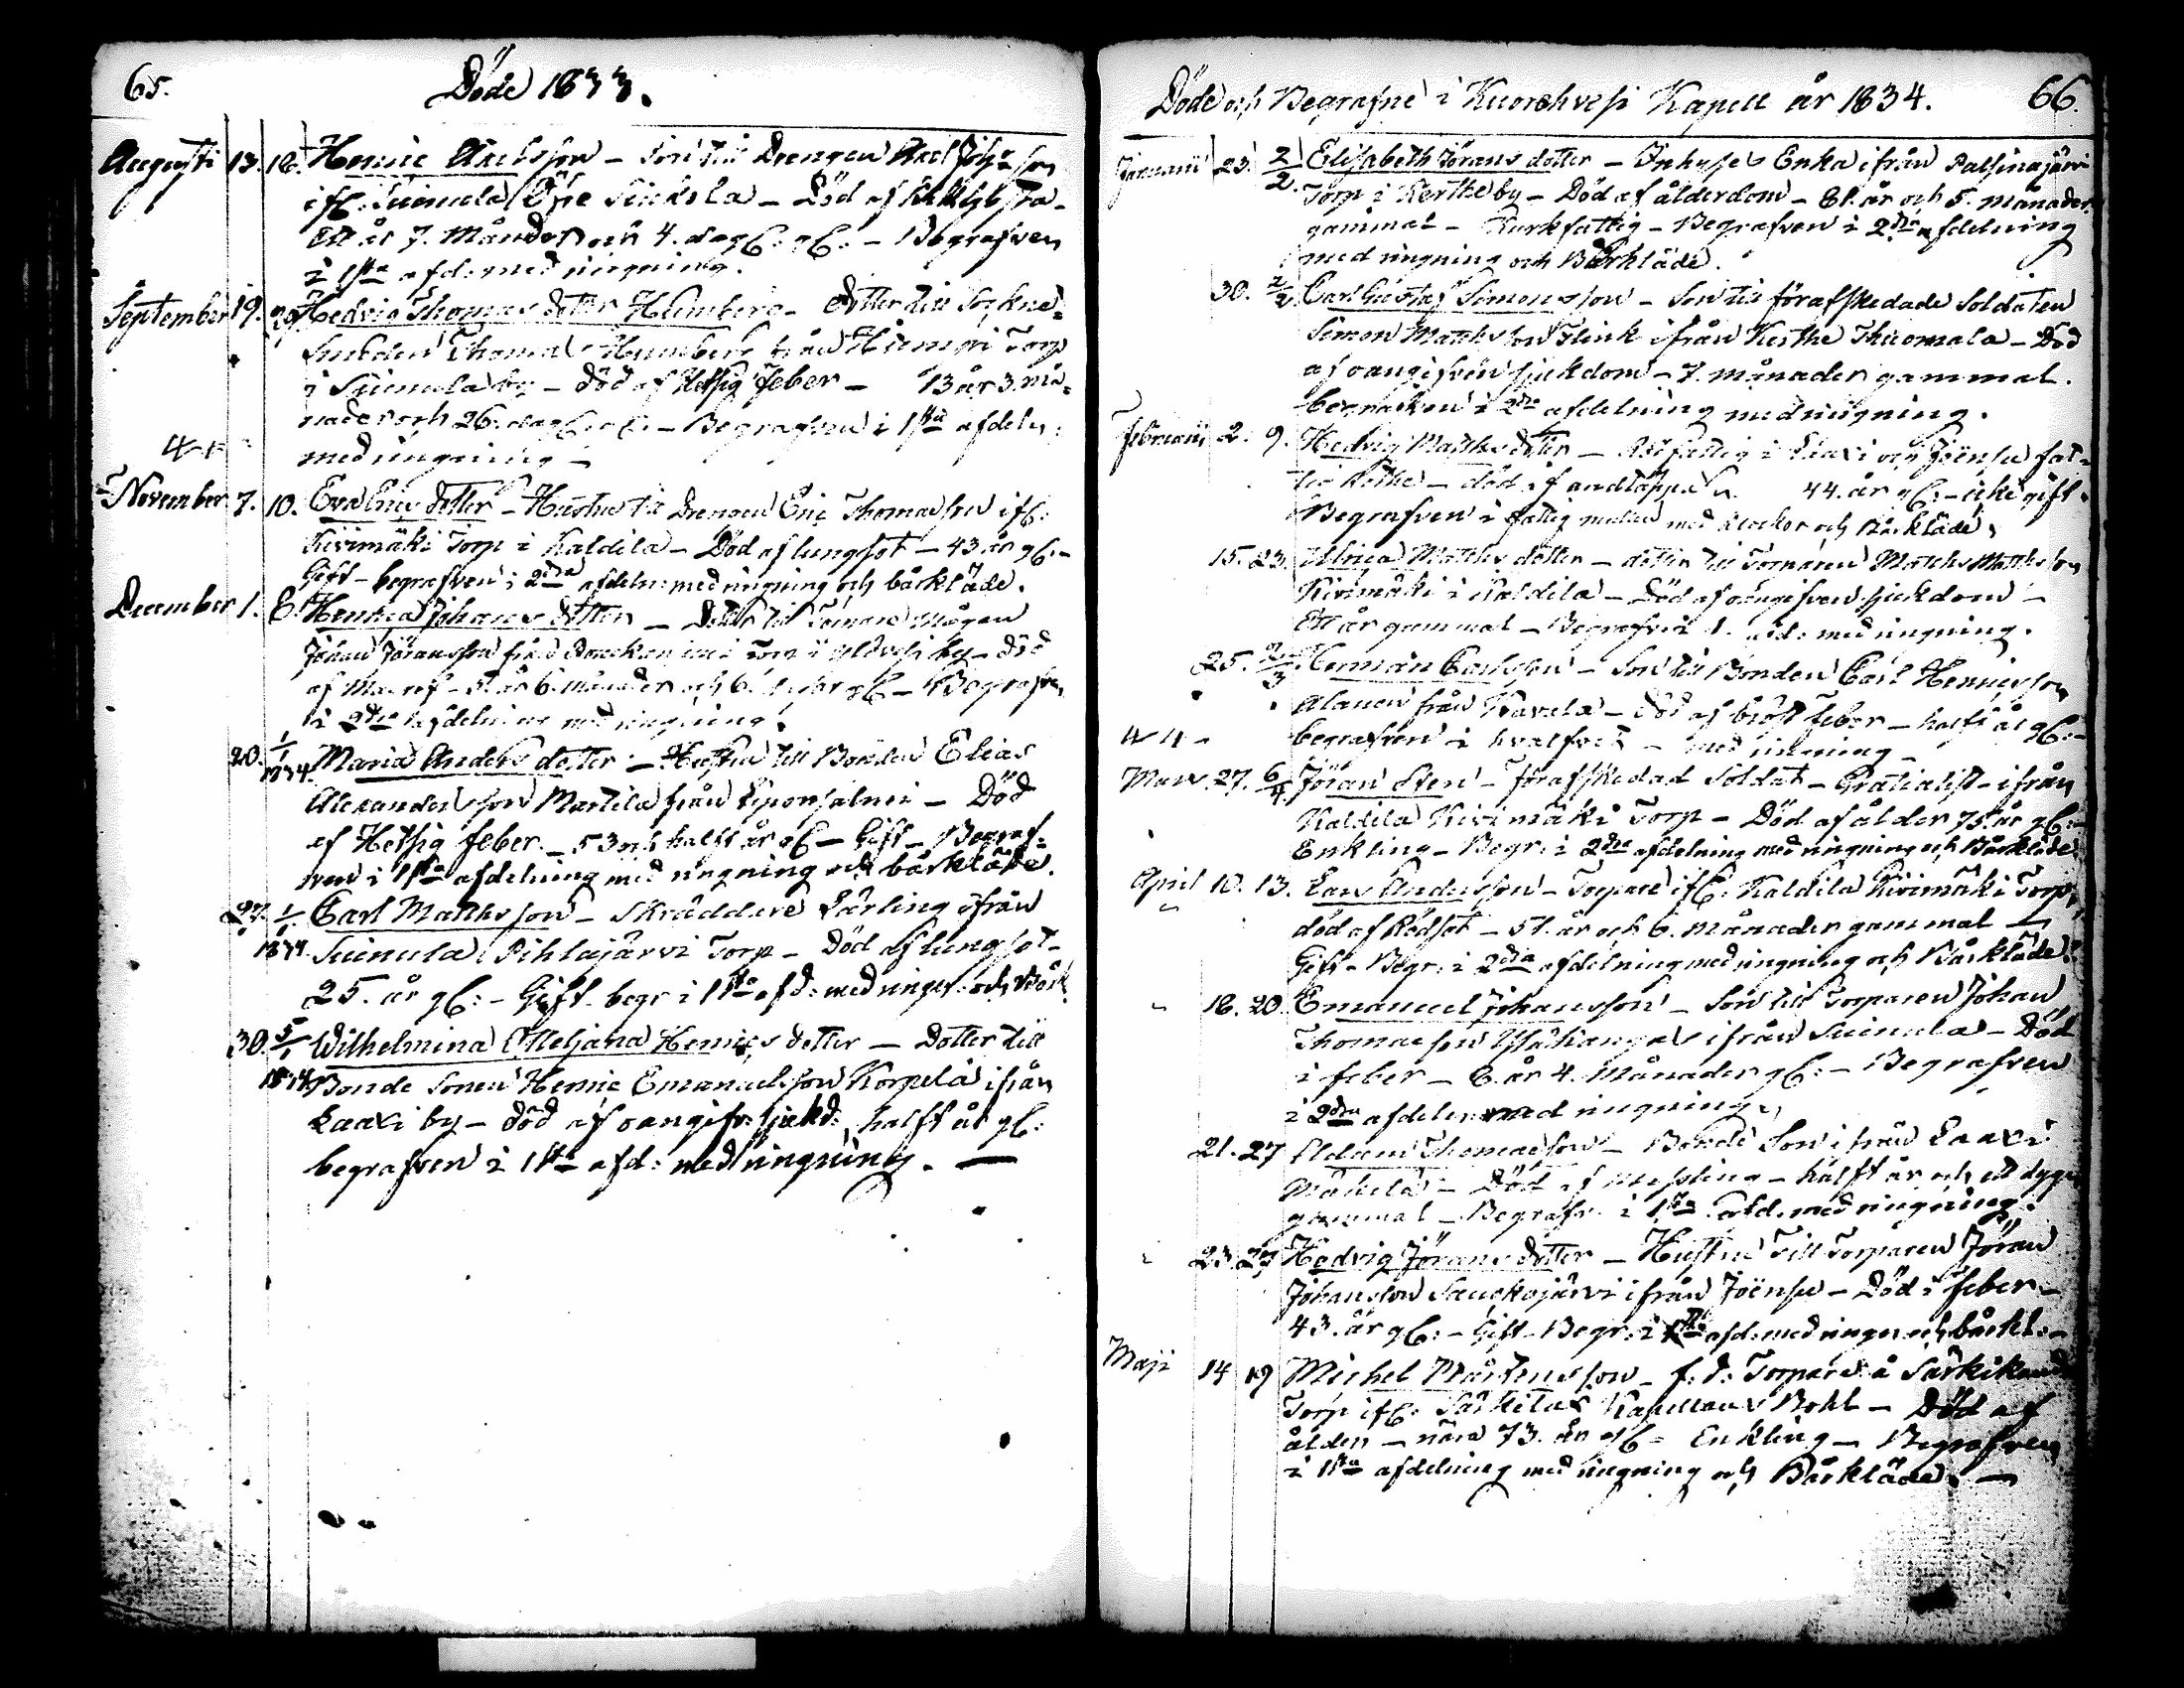 65. Döde 1833.
Augusti 13. 18. Henric Axelsson – Son till Drengen Axel
ifr: Suinula – Död af
Ett år 7. Månader och 4. dag: gl: – Begrafven
i 1sta afd: med ringning.
September 19. Hedvig Thomas dotter Humberg – dotter till Sockne-
Smeden Thomas Humberg från Torp
i Suinula by – död af Hetsig feber – 13 år 3. må-
nader och 26. dag: gl: – Begrafven i 1sta afdeln:
med ringning –
November 7. 10. Eva Erics dotter – Hustru till Drengen Eric Thomasson ifr:
Kivimäki Torp i Kaldila – Död af lungsot – 43 år gl: –
Gift – begrafven i 2dra afdeln: med ringning och bårkläde.
December 1. 8. Henrica Johans dotter – Dotter till Torpare Mågen
Johan Jöransson från Torp i by – död
af – år 6. månader och 6. gl – Begrafven
i 2dra afdelning med ringning.
20. 1/1 1834. Maria Anders dotter – Hustru till Bonden Elias
Alexandersson Martila från – Död
af Hetsig feber – 53 och halft år gl – Gift – Begraf-
ven i 1sta afdelning med ringning och bårkläde.
27. 1/1 1834. Carl Matthsson – Skräddare Lärling ifrån
Suinula Pihlajärvi Torp – Död af lungsot –
25. år gl: – Gift – begr i 1sta afd: med ringn: och Bårkl
30. 5/1 1834 Wilhelmina Henrics dotter – Dotter till
Bonde Sonen Henric Emanuelsson Korpela ifrån
Laaxi by – död af oangifv: sjukd: halft år gl:
begrafven i 1sta afd: med ringning. –
Döde och Begrafne i Kuorehvesi Kapell år 1834. 66.
Januarii 23. 2/2. Elisabeth Jörans dotter – Inhyses Enka ifrån
Torp i Kerthe by – Död af ålderdom – 81. år och 5. månader
gammal – Kurkfattig – Begrafven i 2dra afdelning
med ringning och Bårkläde.
30. 2/2. Carl Gustaf Simonsson – Son till förafskedade Soldaten
Simon Matthsson Flink ifrån Kerthe Thuomala – Död
af oangifven sjukdom – 7. månader gammal.
begrafven i 2dra afdelning med ringning.
Februarii 2. 9. Hedvig Matths dotter – i Laaxi och Joensu fat-
tig Rothe – död af andtäppa 44. år gl: – icke gift.
Begrafven i fattig med klockor och Bårkläde.
15. 23. Ulrica Matths dotter – dotter till Torparen Matths Matthsson
Kivimäki i Kaldila – Död af oangifven sjukdom –
Ett år gammal – Begrafv: i 1. afd: med ringning.
25. 2/3. Herman Carlsson – Son till Bonden Carl Henricsson
Alanen från Kavala – död af bröst feber – halft år gl: –
begrafven i hvalfvet – med ringning –
Mars. 27. 6/4. Jöran Sten – Förafskedad Soldat – Gratialist – ifrån
Kaldila Kivimäki Torp – Död af ålder 75. år gl: –
Enkling – Begr: i 2dra afdelning med ringning och Bårkläde.
April 10. 13. Lars Andersson – Torpare ifr: Kaldila Kivimäki Torp,
död af Rödsot – 51. år och 6. månader gammal –
Gift – Begr: i 2dra afdelning med ringning och Bårkläde.
18. 20. Emanuel Johansson – Son till Torparen Johan
Thomasson ifrån Suinula – Död
i feber – 6. år 4. Månader gl: – Begrafven
i 2dra afdeln: med ringning.
21. 27 Adam Thomasson – Bonde Son ifrån Laaxi
Mäkelä – Död af Messling – halft år och ett dygn
gammal – Begrafv: i 1sta afd. med ringning.
23. 27 Hedvig Jörans dotter – Hustru till Torparen Jöran
Johansson Saukojärvi ifrån Joensu – Död i feber –
43. år gl: – Gift – Begr: i 1sta afd: med ringn och bårkl: –
Maji 14 19 Michel Mårtensson – f. d. Torpare å
Torp ifr: Särkilax Kapellans Bohl – Död af
ålder – nära 73. år gl – Enkling – Begrafven
i 1sta afdelning med ringning och Bårkläde. –